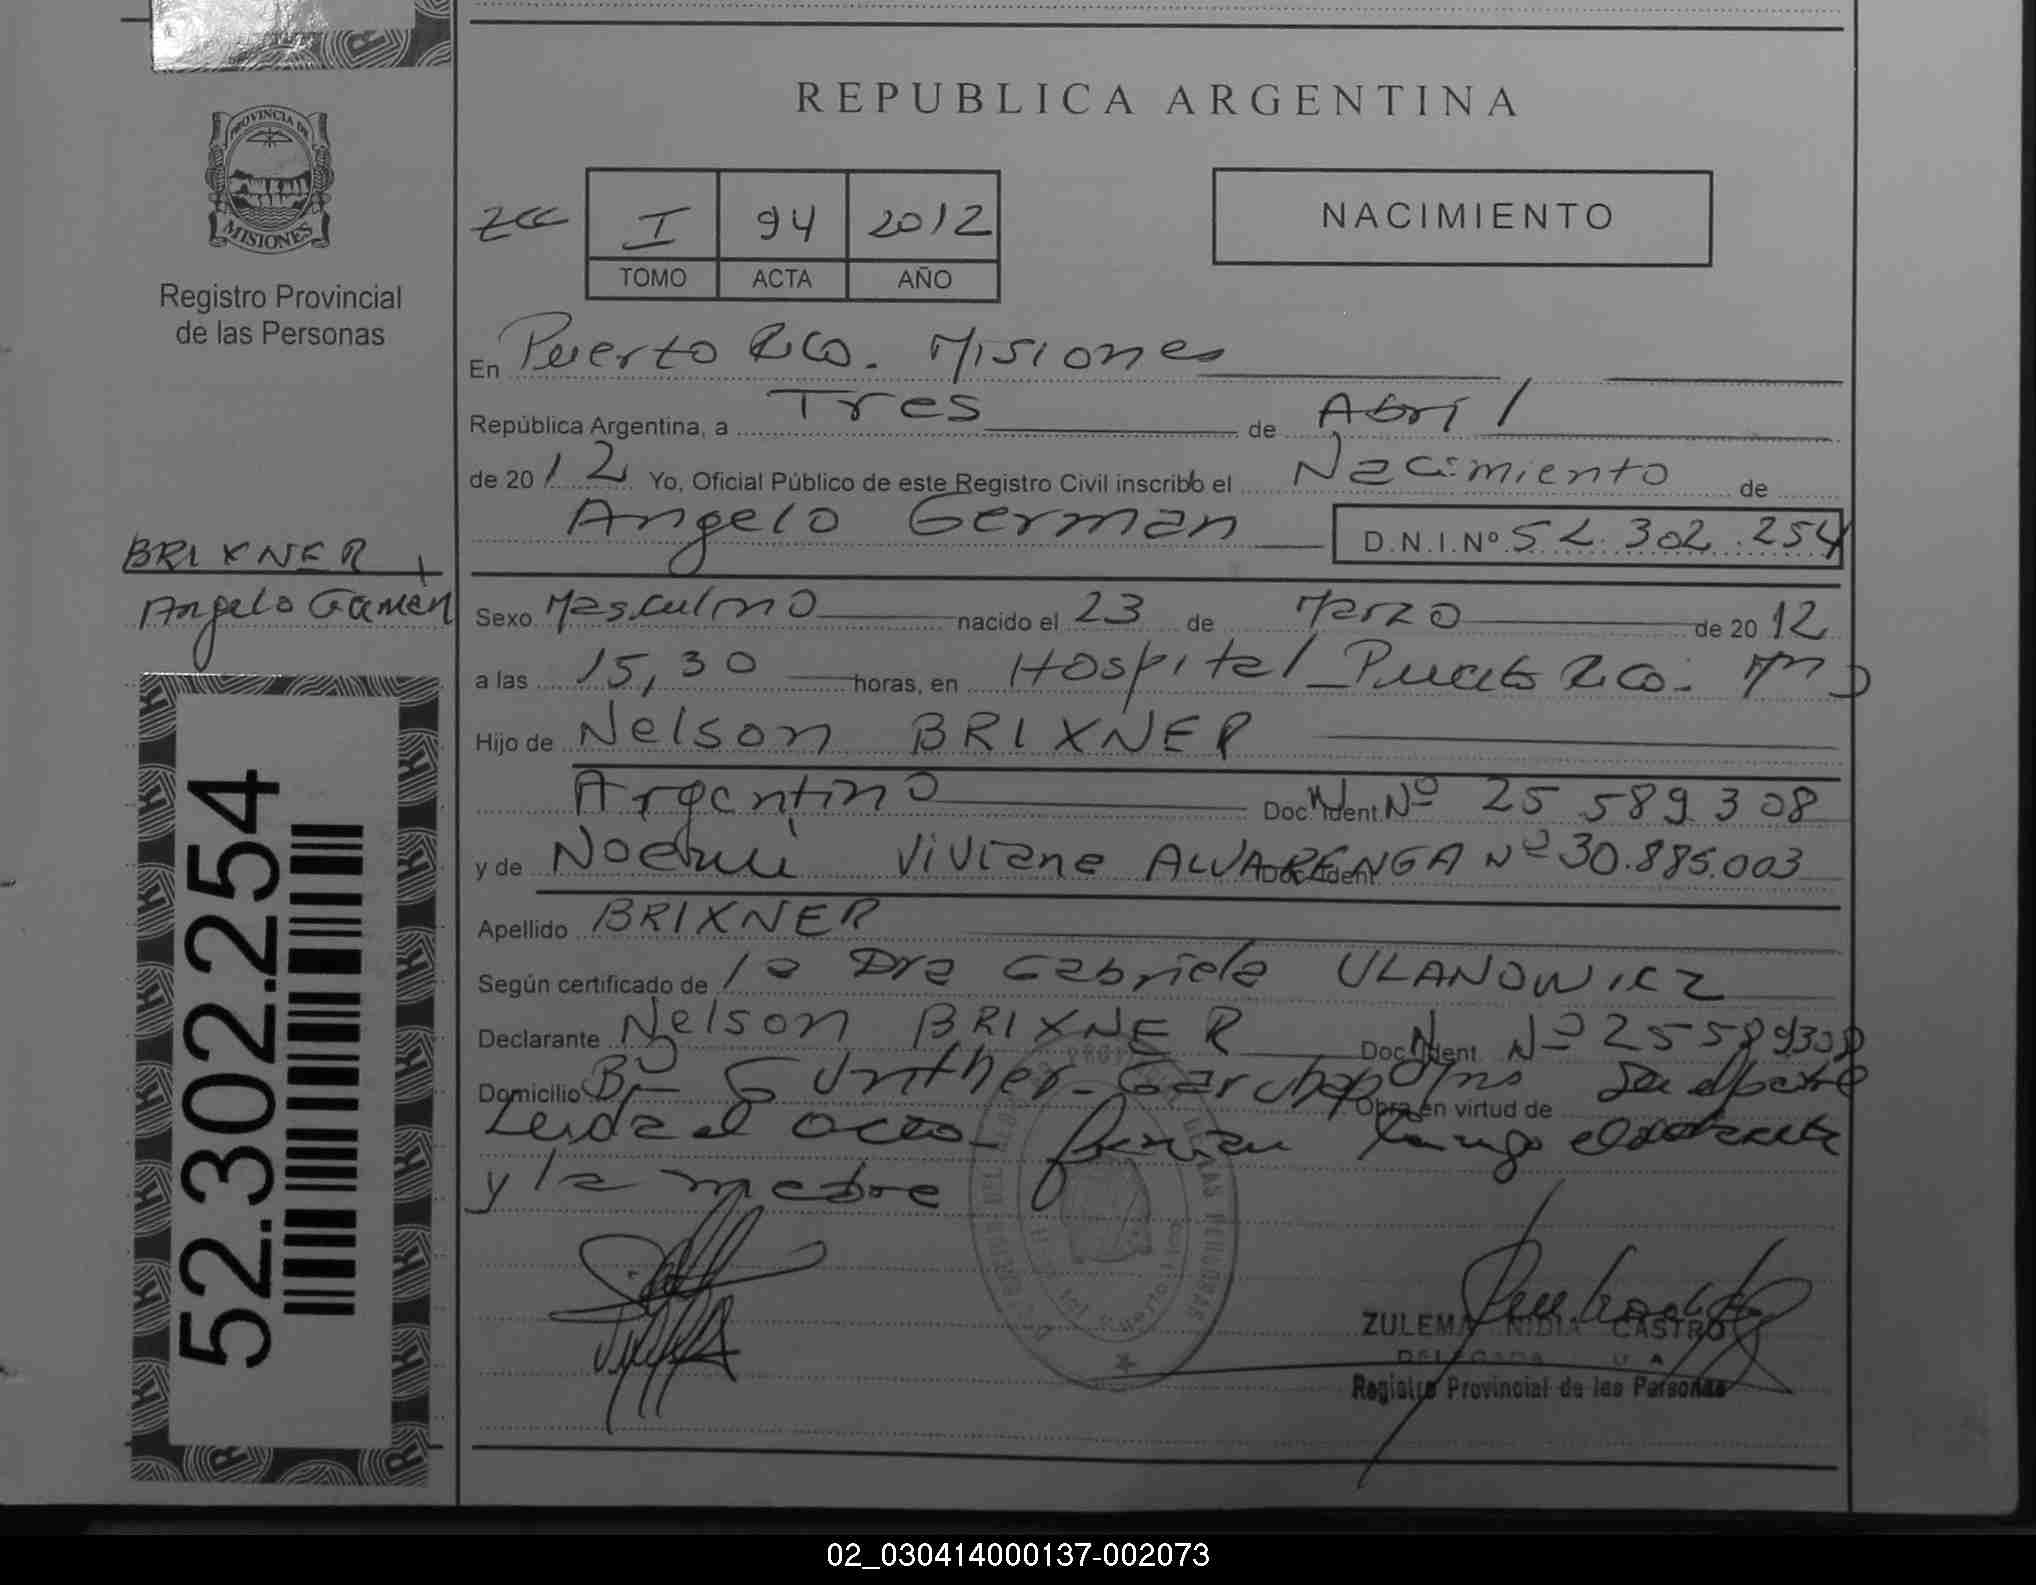 REPUBLICA ARGENTINA
PROVINCIA DE
MISIONES
Registro Provincial
de las Personas
I 94 2012
TOMO ACTA AÑO
NACIMIENTO
En Puerto Rico. Misiones
República Argentina, a Tres de Abril
de 2012 Yo, Oficial Público de este Registro Civil inscribo el Nacimiento de
Angelo German D.N.I.Nº 52.302.254
BRIXNER
Angelo German
Sexo Masculino nacido el 23 de Marzo de 2012
a las 15,30 horas, en Hospital Puerto Rico. Mns
Hijo de Nelson BRIXNER
Argentino Doc. Ident. Nº 25 589 308
y de Noemi Viviana ALVARENGA Doc. Ident. Nº 30.885.003
Apellido BRIXNER
Según certificado de la Dra Gabriela ULANOWICZ
Declarante Nelson BRIXNER Doc. Ident. Nº 25589308
Domicilio Bº Gunther - Garuhapé Mns Obra en virtud de Ser el padre
Leida el acta firman conmigo el declarante
y la madre
52.302.254
ZULEMA NIDIA CASTRO
DELEGADA
Registro Provincial de las Personas
02_030414000137-002073